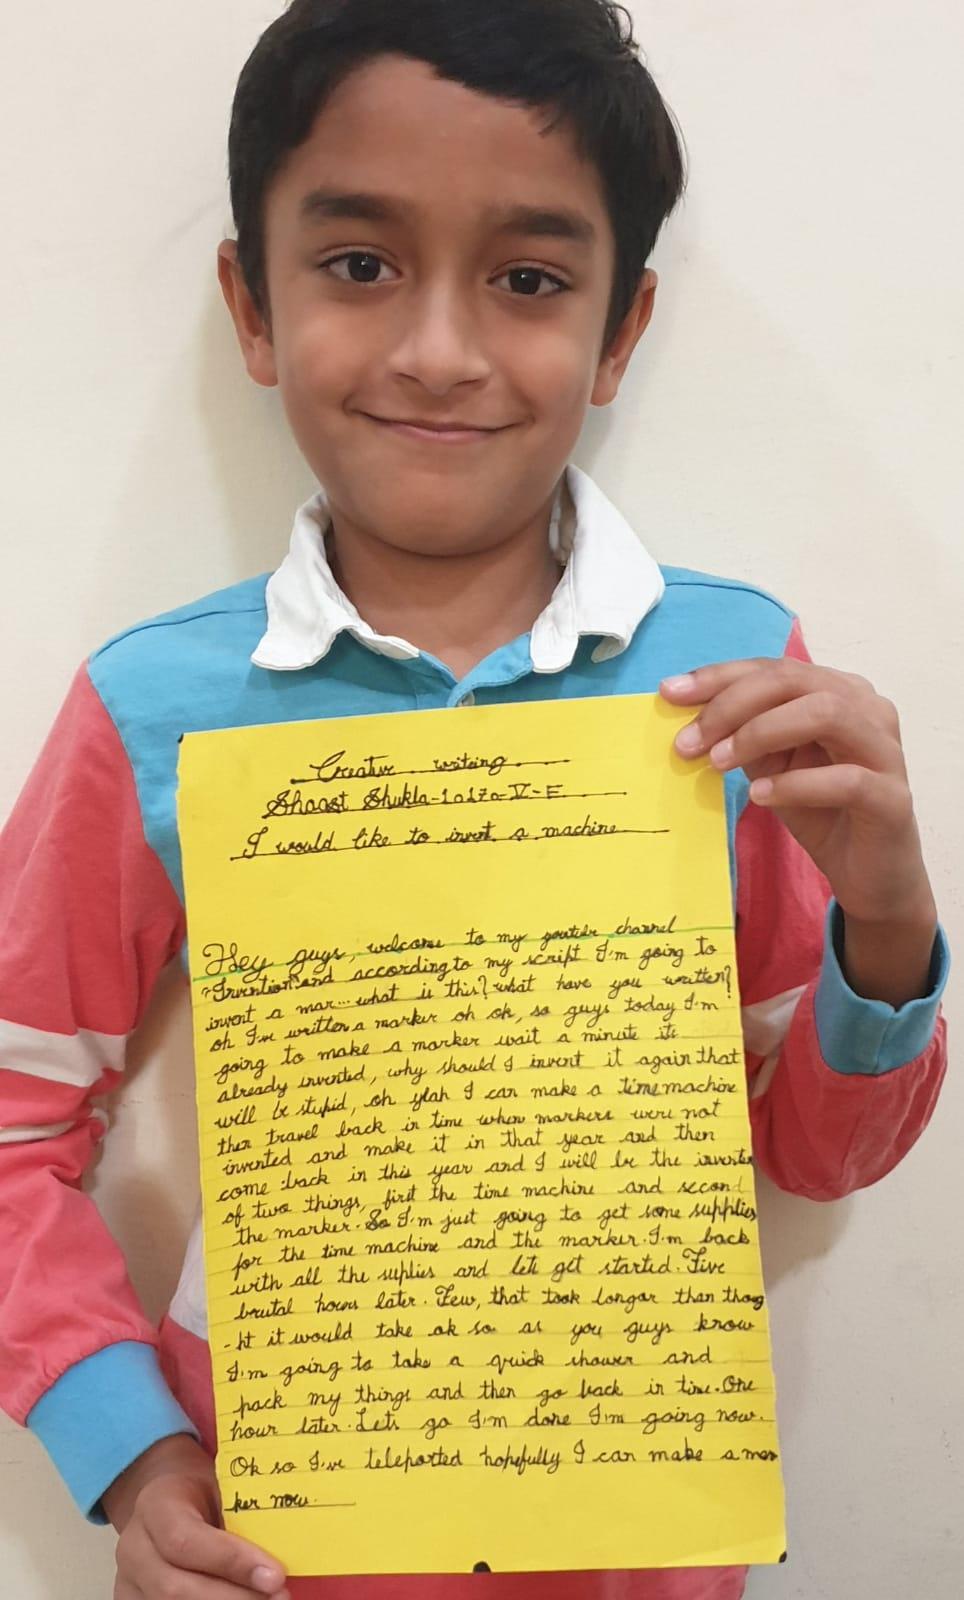 Creative writing
Shaast Shukla-10170-V-E
I would like to invent a machine
Hey guys, welcome to my youtube channel
"Invention" and according to my script I'm going to
invent a mar... what is this? what have you written?
oh I've written a marker oh ok, so guys today I'm
going to make a marker wait a minute its
already invented, why should I invent it again that
will be stupid, oh yeah I can make a time machine
then travel back in time when markers were not
invented and make it in that year and then
come back in this year and I will be the inventor
of two things, first the time machine and second
the marker. So I'm just going to get some supplies
for the time machine and the marker. I'm back
with all the suplies and lets get started. Five
brutal hours later. Few, that took longar than thoug
-ht it would take ok so as you guys know
I'm going to take a quick shower and
pack my things and then go back in time. One
hour later. Lets go I'm done I'm going now.
Ok so I've teleported hopefully I can make a mar
ker now.